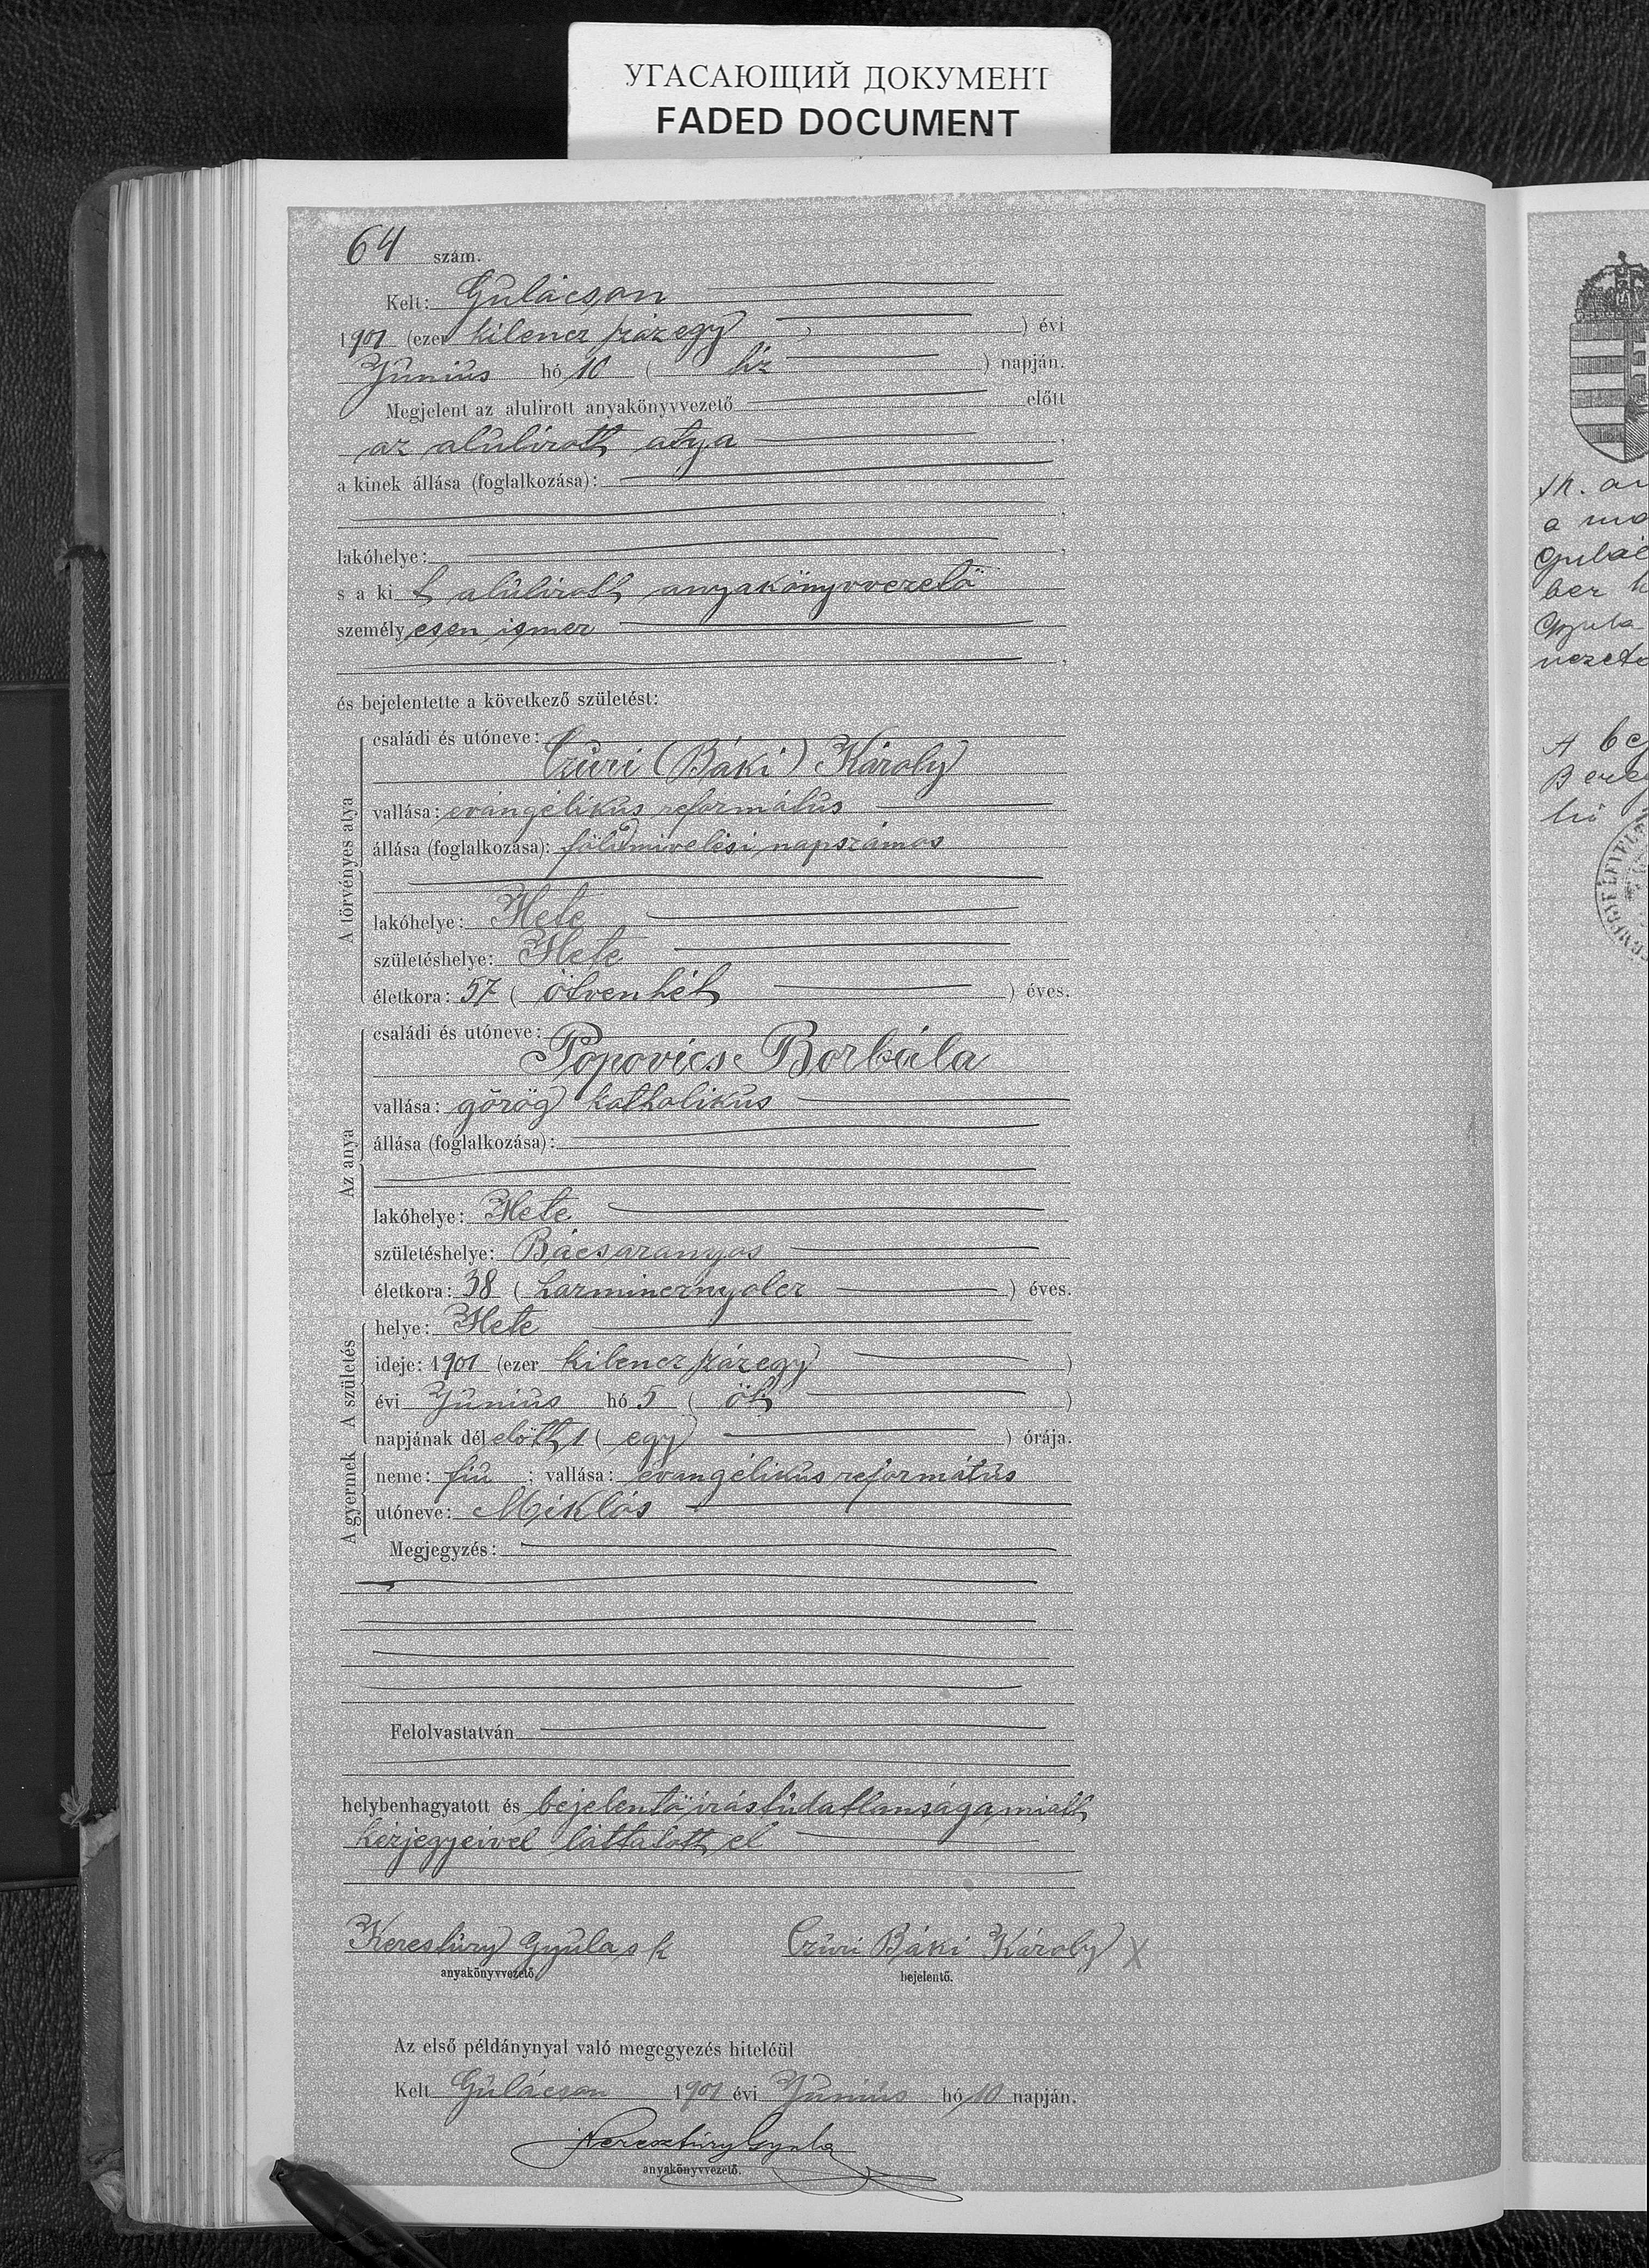 УГАСАЮЩИЙ ДОКУМЕНТ
FADED DOCUMENT
64 szám.
Kelt: Gulácson
1901 (ezer kilencz száz egy) évi
Június hó 10 ( tíz ) napján.
Megjelent az alulirott anyakönyvvezető előtt
az alulirott atya ,
a kinek állása (foglalkozása):
,
lakóhelye: ,
s a ki t alulirott anyakönyvvezető
személyesen ismer
,
és bejelentette a következő születést:
A törvényes atya
családi és utóneve:
Czúri (Báki) Károly
vallása: evangélikus református
állása (foglalkozása): földmivelési napszámos
lakóhelye: Hete
születéshelye: Hete
életkora: 57 ( ötvenhét ) éves.
Az anya
családi és utóneve:
Popovics Borbála
vallása: görög katholikus
állása (foglalkozása):
lakóhelye: Hete
születéshelye: Bácsaranyos
életkora: 38 ( harmincznyolcz ) éves.
A születés
helye: Hete
ideje: 1901 (ezer kilencz száz egy )
évi Június hó 5 ( öt )
napjának dél előtt 1 ( egy ) órája.
A gyermek
neme: fiú ; vallása: evangélikus református
utóneve: Miklós
Megjegyzés:
Felolvastatván
helybenhagyatott és bejelentő irástudatlansága miatt
kézjegyeivel láttatott el
Keresztúry Gyula s k Czúri Báki Károly X
anyakönyvvezető. bejelentő.
Az első példánynyal való megegyezés hiteléül
Kelt Gulácson 1901 évi Június hó 10 napján.
Keresztúry Gyula
anyakönyvvezető.
a
ber
Gyula
A